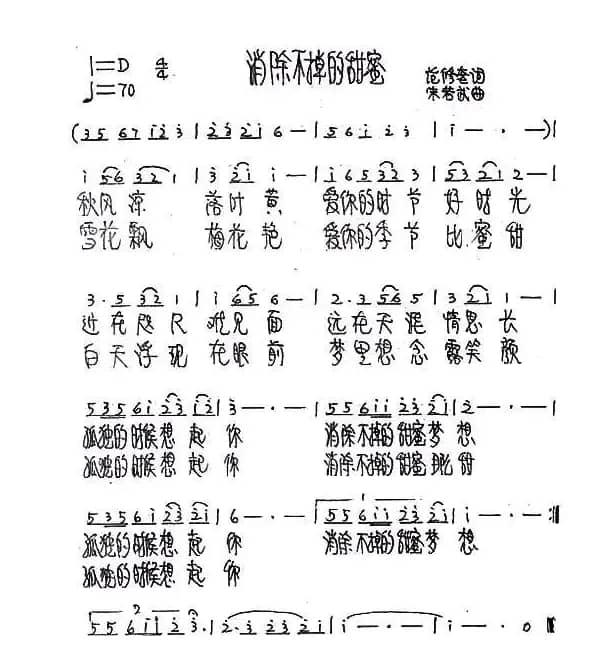 1=D 4/4 消除不掉的甜蜜 词
♩=70 朱 曲
(3 5 6 7 i 2 3 | 2 3 2 i 6 — | 5 6 i 2 3 | i — · — ·) |
i 5 6 3 2 1 | 3 2 i i — | i 6 5 3 2 3 | 5 3 2 i 2 — |
秋风凉 落叶黄 爱你的时节 好时光
雪花飘 梅花艳 爱你的季节 比蜜甜
3 · 5 3 2 1 | i 6 5 6 — | 2 · 3 5 6 5 | 3 2 i — |
近在咫尺 难见面 远在天涯 情思长
白天浮现 在眼前 梦里想念 露笑颜
5 3 5 6 i 2 3 i 2 | 3 — · — · | 5 5 6 i i 2 3 2 i | 2 — · — · |
孤独的时候想起你 消除不掉的甜蜜梦想
孤独的时候想起你 消除不掉的甜蜜 甜
5 3 5 6 i 2 3 2 i | 6 — · — · | 5 5 6 i i 2 3 2 i | i — · — · :||
孤独的时候想起你 消除不掉的甜蜜梦想
孤独的时候想起你
5 5 6 i i 2 3 · | 2 · 3 2 3 2 i | i — · — · | i — · 0 ||